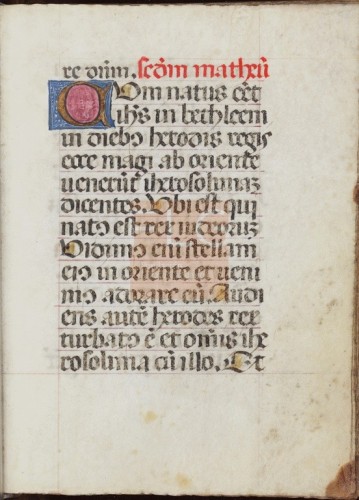 re dñm. scd̃m matheũ
Cum natus eẽt
ihs̃ in bethleem
in diebꝰ herodis regis
ecce magi ab oriente
uenerũt iherosolimaʒ
dicentes. Vbi est qui
natꝰ est rex iudeoruʒ
Vidimꝰ enĩ stellam
eiꝰ in oriente et ueni
mꝰ adorare eũ. Audi
ens autẽ herodes rex
turbatꝰ ẽ et om̃is ihe
rosolima cũ illo. Et